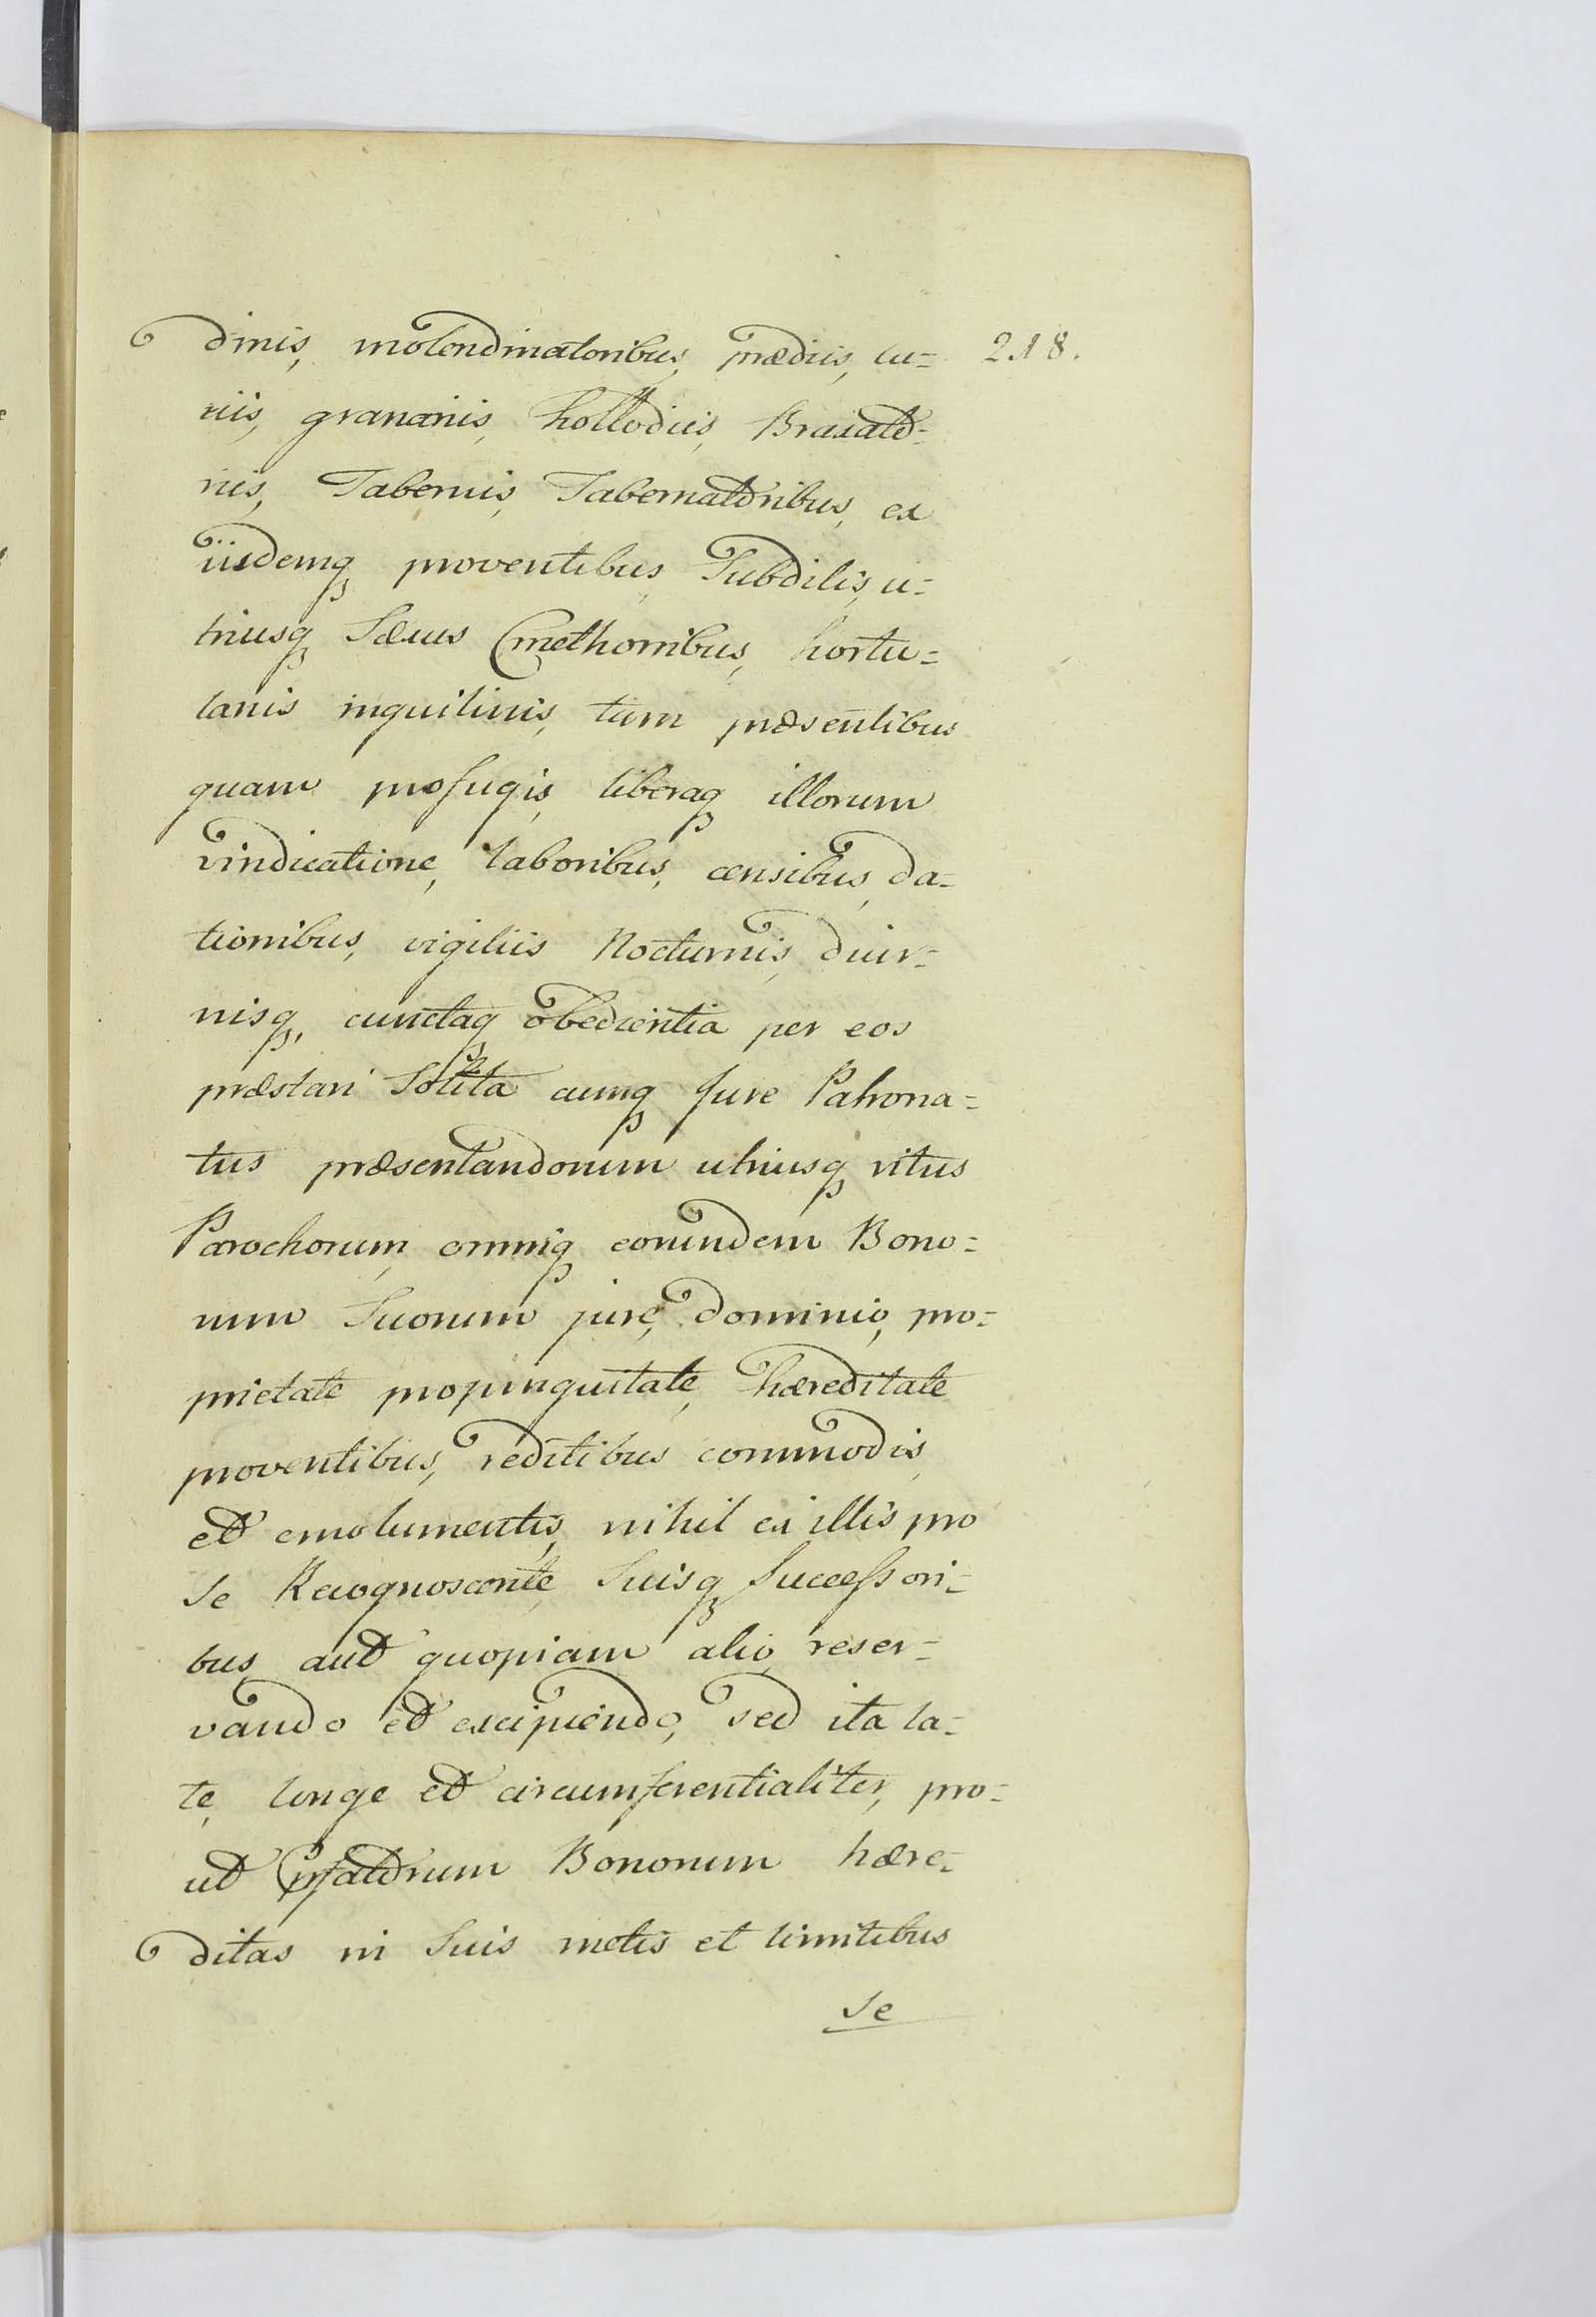 218.
dinis, molendinatoribus, prædiis, cu=
riis, granariis, hollodiis, Braxato=
riis, Tabernis, Tabernatoribus, ex
iisdemq proventibus, Subditis, u=
triusq Sexus Cmethonibus, hortu=
lanis inquilinis, tam præsentibus
quam profugis, liberaq illorum
vindicatione, laboribus, censibus, da=
tionibus, vigiliis Nocturnis, diur=
nisq, cunctaq obedientia per eos
præstari Solita cumq Jure Patrona=
tus præsentandorum utriusq ritus
Parochorum, omniq eorundem Bono=
rum Suorum jure, dominio, pro=
prietate propinquitate, hæreditate
proventibus, reditibus commodis,
et emolumentis, nihil ex illis pro
Se Recognoscente, Suisq Successori=
bus, aut quopiam alio, reser=
vando et excipiendo, sed ita la=
te, longe et circumferentialiter, pro=
ut pfatorum Bonorum hære=
ditas in Suis metis et limitibus
Se